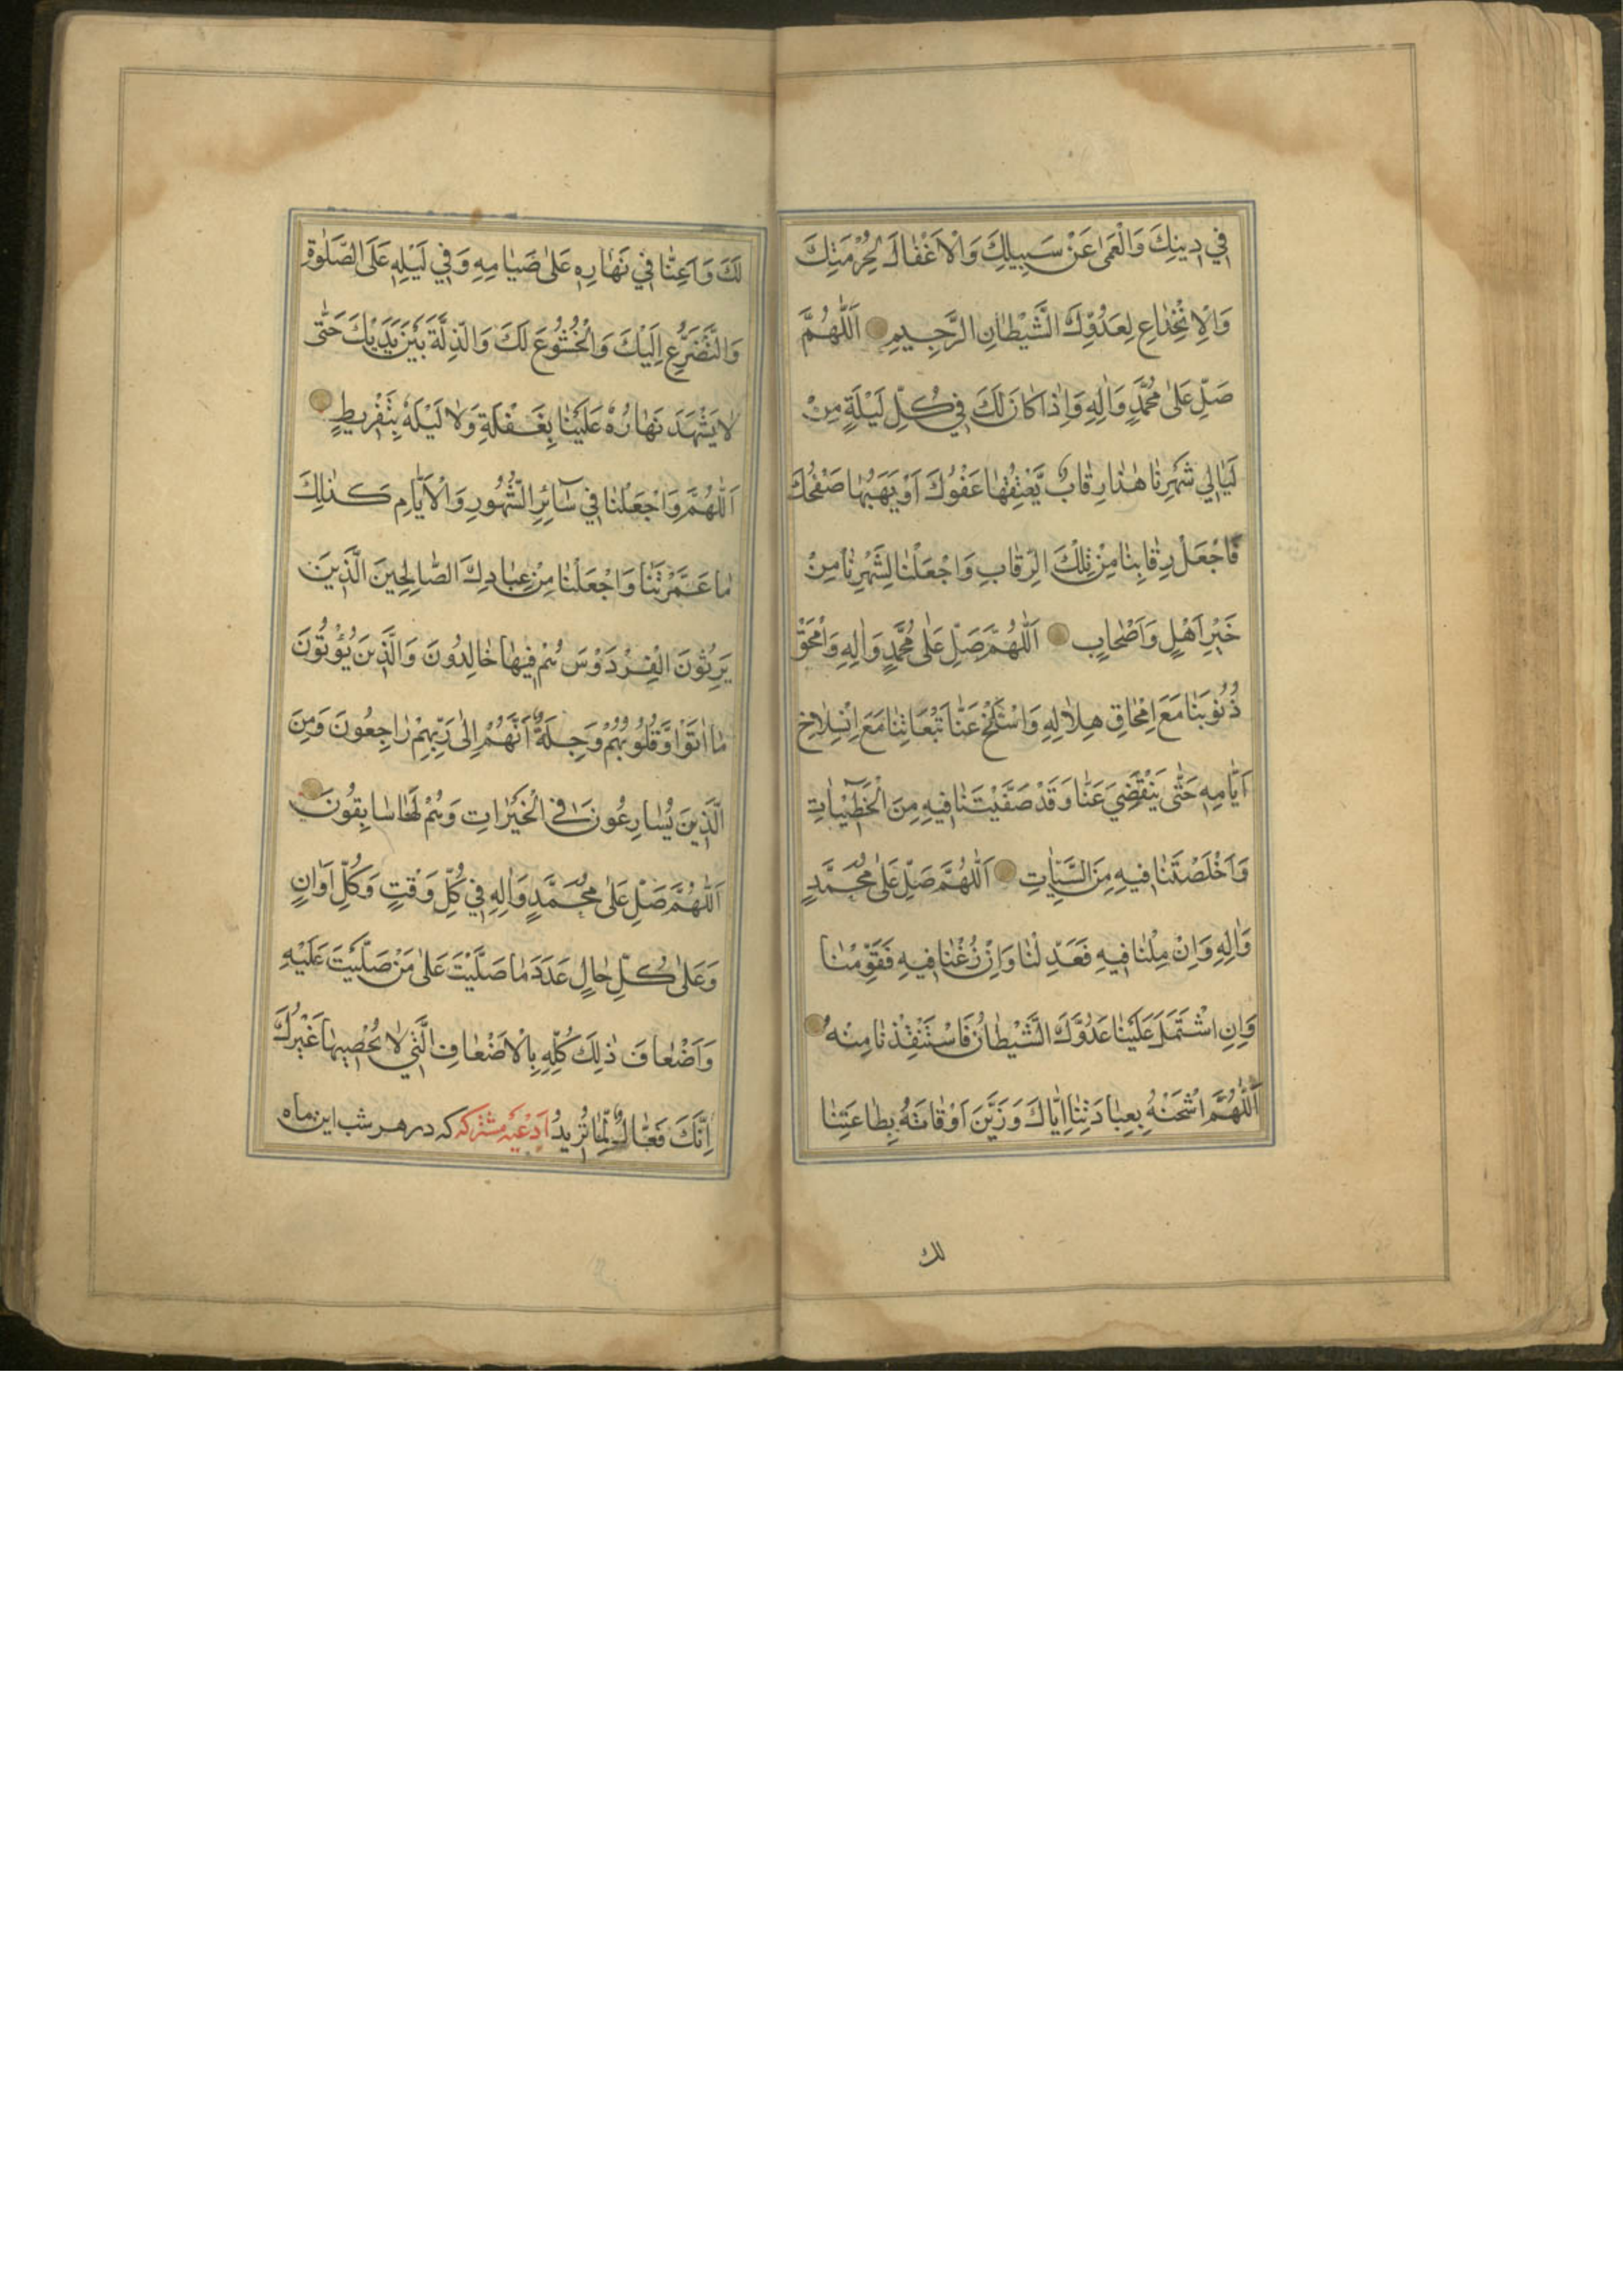 فِي دِينِكَ وَالْعَمٰى عَنْ سَبِيلِكَ وَالْاَغْفَالَ لِحُرْمَتِكَ
وَالْاِنْخِدَاعِ لِعَدُوِّكَ الشَّيْطَانِ الرَّجِيمِ اَللّٰهُمَّ
صَلِّ عَلٰى مُحَمَّدٍ وَاٰلِهِ وَاِذَا كَانَ لَكَ فِي كُلِّ لَيْلَةٍ مِنْ
لَيَالِي شَهْرِنَا هٰذَا رِقَابٌ يُعْتِقُهَا عَفْوُكَ اَوْ يَهَبُهَا صَفْحُكَ
فَاجْعَلْ رِقَابَنَا مِنْ تِلْكَ الرِّقَابِ وَاجْعَلْنَا لِشَهْرِنَا مِنْ
خَيْرِ اَهْلٍ وَاَصْحَابٍ اَللّٰهُمَّ صَلِّ عَلٰى مُحَمَّدٍ وَاٰلِهِ وَامْحَقْ
ذُنُوبَنَا مَعَ اِمْحَاقِ هِلَالِهِ وَاسْلَخْ عَنَّا تَبِعَاتِنَا مَعَ اِنْسِلَاخِ
اَيَّامِهِ حَتّٰى يَنْقَضِيَ عَنَّا وَقَدْ صَفَّيْتَنَا فِيهِ مِنَ الْخَطِيئَاتِ
وَاَخْلَصْتَنَا فِيهِ مِنَ السَّيِّئَاتِ اَللّٰهُمَّ صَلِّ عَلٰى مُحَمَّدٍ
وَاٰلِهِ وَاِنْ مِلْنَا فِيهِ فَعَدِّلْنَا وَاِنْ زُغْنَا فِيهِ فَقَوِّمْنَا
وَاِنِ اشْتَمَلَ عَلَيْنَا عَدُوُّكَ الشَّيْطَانُ فَاسْتَنْقِذْنَا مِنْهُ
اَللّٰهُمَّ اشْحَنْهُ بِعِبَادَتِنَا اِيَّاكَ وَزَيِّنْ اَوْقَاتَهُ بِطَاعَتِنَا
لك
لَكَ وَاَعِنَّا فِي نَهَارِهِ عَلٰى صِيَامِهِ وَفِي لَيْلِهِ عَلَى الصَّلٰوةِ
وَالتَّضَرُّعِ اِلَيْكَ وَالْخُشُوعَ لَكَ وَالذِّلَّةَ بَيْنَ يَدَيْكَ حَتّٰى
لَا يَشْهَدَ نَهَارُهُ عَلَيْنَا بِغَفْلَةٍ وَلَا لَيْلَهُ بِتَفْرِيطٍ
اَللّٰهُمَّ وَاجْعَلْنَا فِي سَائِرِ الشُّهُورِ وَالْاَيَّامِ كَذٰلِكَ
مَا عَمَّرْتَنَا وَاجْعَلْنَا مِنْ عِبَادِكَ الصَّالِحِينَ الَّذِينَ
يَرِثُونَ الْفِرْدَوْسَ هُمْ فِيهَا خَالِدُونَ وَالَّذِينَ يُؤْتُونَ
مَا اٰتَوْا وَقُلُوبُهُمْ وَجِلَةٌ اَنَّهُمْ اِلٰى رَبِّهِمْ رَاجِعُونَ وَمِنَ
الَّذِينَ يُسَارِعُونَ فِي الْخَيْرَاتِ وَهُمْ لَهَا سَابِقُونَ
اَللّٰهُمَّ صَلِّ عَلٰى مُحَمَّدٍ وَاٰلِهِ فِي كُلِّ وَقْتٍ وَكُلِّ اَوَانٍ
وَعَلٰى كُلِّ حَالٍ عَدَدَ مَا صَلَّيْتَ عَلٰى مَنْ صَلَّيْتَ عَلَيْهِ
وَاَضْعَافَ ذٰلِكَ كُلِّهِ بِالْاَضْعَافِ الَّتِي لَا يُحْصِيهَا غَيْرُكَ
اِنَّكَ فَعَّالٌ لِمَا تُرِيدُ ادعیه مشترکه که در هر شب این ماه